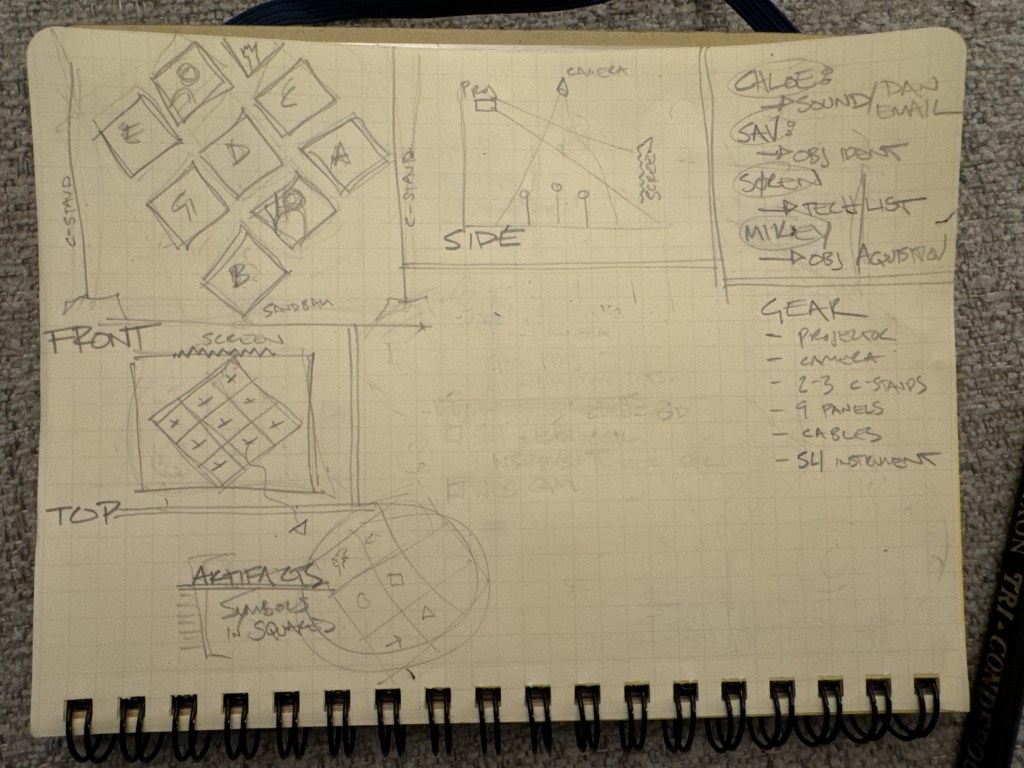 C-STAND
E
E
D
A
G
B
C-STAND
SANDBAG
FRONT
PROJ
CAMERA
SCREEN
SIDE
CHLOE:
→ SOUND/DAN
EMAIL
SAV:
→ OBJ IDENT
SOREN
→ TECH LIST
MIKEY
→ OBJ AQUISTION
GEAR
- PROJECTOR
- CAMERA
- 2-3 C-STANDS
- 9 PANELS
- CABLES
- SL/ INSTRUMENT
SCREEN
TOP
ARTIFACTS
SYMBOLS
IN SQUARES